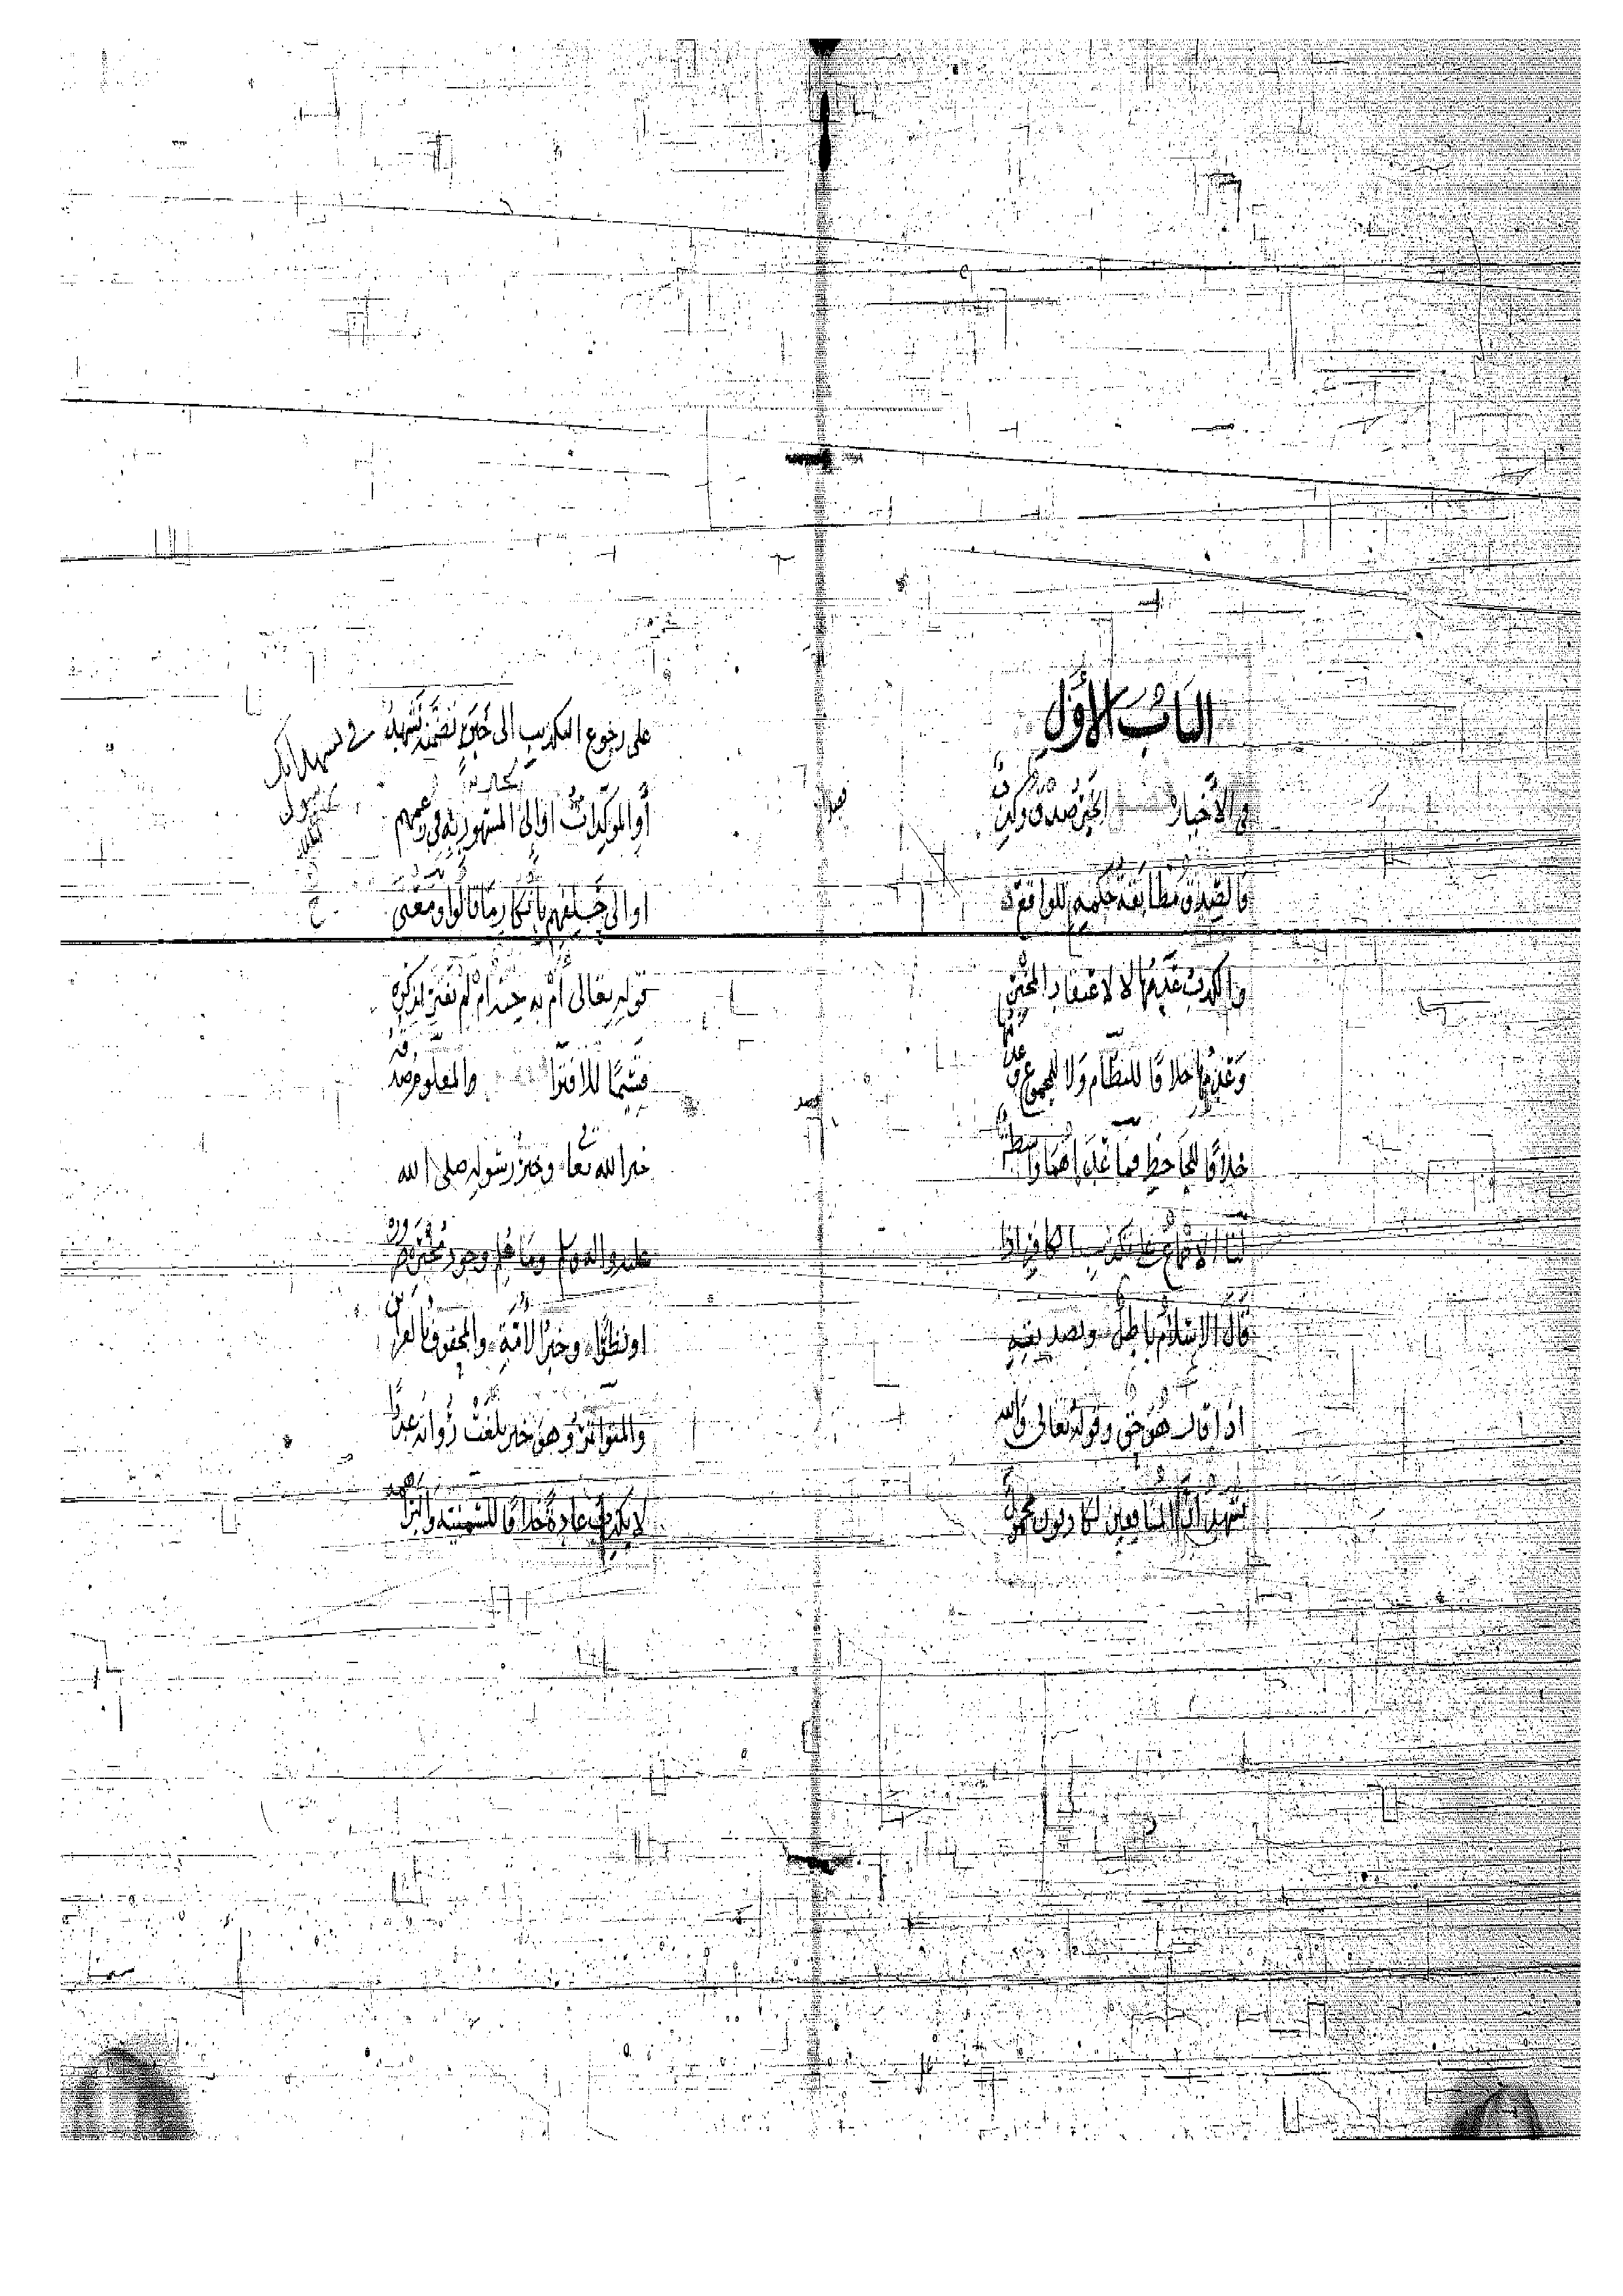 الباب الأول
في الأخبار الخبر صدق وكذب
فالصدق مطابقة حكمه للواقع
والكذب عدمها لا لاعتقاد المخبر
وعدمها خلافًا للنظّام ولا للمجموع وعدمهما
خلافًا للجاحظ فما عداهما واسطة
لنا الاجماع على تكذيب الكافر اذا
قال الإسلام باطل وتصديقه
اذا قال هو حق وقوله تعالى والله
يشهد ان المنافقين لكاذبون محمول
فصل
على رجوع التكذيب الى خبر تضمنه نشهد
أو المؤكدات او الى المشهور به في زعمهم
او الى حلفهم بانكار ما قالوا ومعنى
قوله تعالى أم به جنة أم لم يفتر لذكره
قسيمًا للافترا والمعلوم صدقه
خبر الله تعا وخبر رسوله صلى الله
عليه واله وسلم وما علم وجود مخبره ضرورة
او نظرًا وخبر الامة والمحفوف بالقرائن
والمتواتر وهو خبر بلغت رواته عددًا
لا يكذب عادة خلافًا للسمنية والبراهمة
في نشهد انك
لرسول